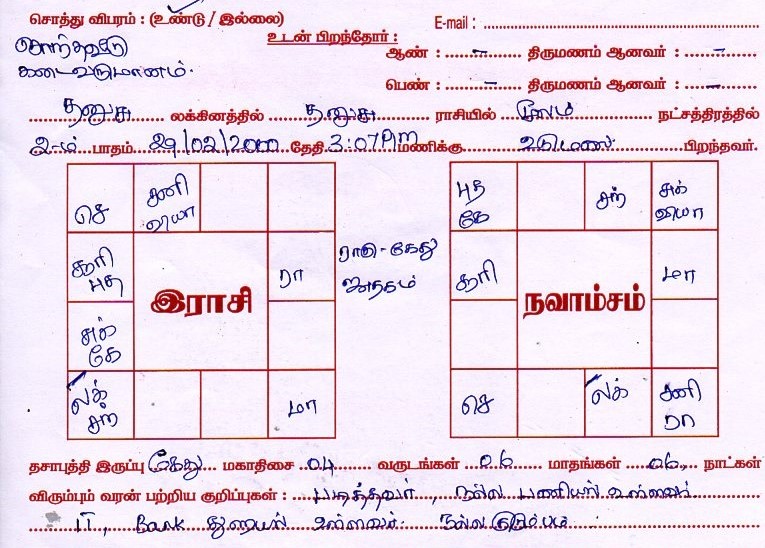 சொத்து விபரம் : (உண்டு / இல்லை) E-mail :
உடன் பிறந்தோர் :
சொந்தவீடு ஆண் : - திருமணம் ஆனவர் : -
கடைவருமானம்.
பெண் : - திருமணம் ஆனவர் : -
தனுசு லக்கினத்தில் தனுசு ராசியில் மூலம் நட்சத்திரத்தில்
2-ம் பாதம் 29/02/2000 தேதி 3:07Pm மணிக்கு உடுமலை பிறந்தவர்.
செ சனி வியா
சூரி புத ரா
சுக் கே
லக் சந் மா
இராசி
ராகு - கேது
ஜாதகம்
புத கே சந் சுக் வியா
சூரி மா
செ லக் சனி ரா
நவாம்சம்
தசாபுத்தி இருப்பு கேது மகாதிசை 04 வருடங்கள் 06 மாதங்கள் 06 நாட்கள்
விரும்பும் வரன் பற்றிய குறிப்புகள் : படித்தவர், நல்ல பணியில் உள்ளவர்
IT, Bank துறையில் உள்ளவர். நல்ல குடும்பம்